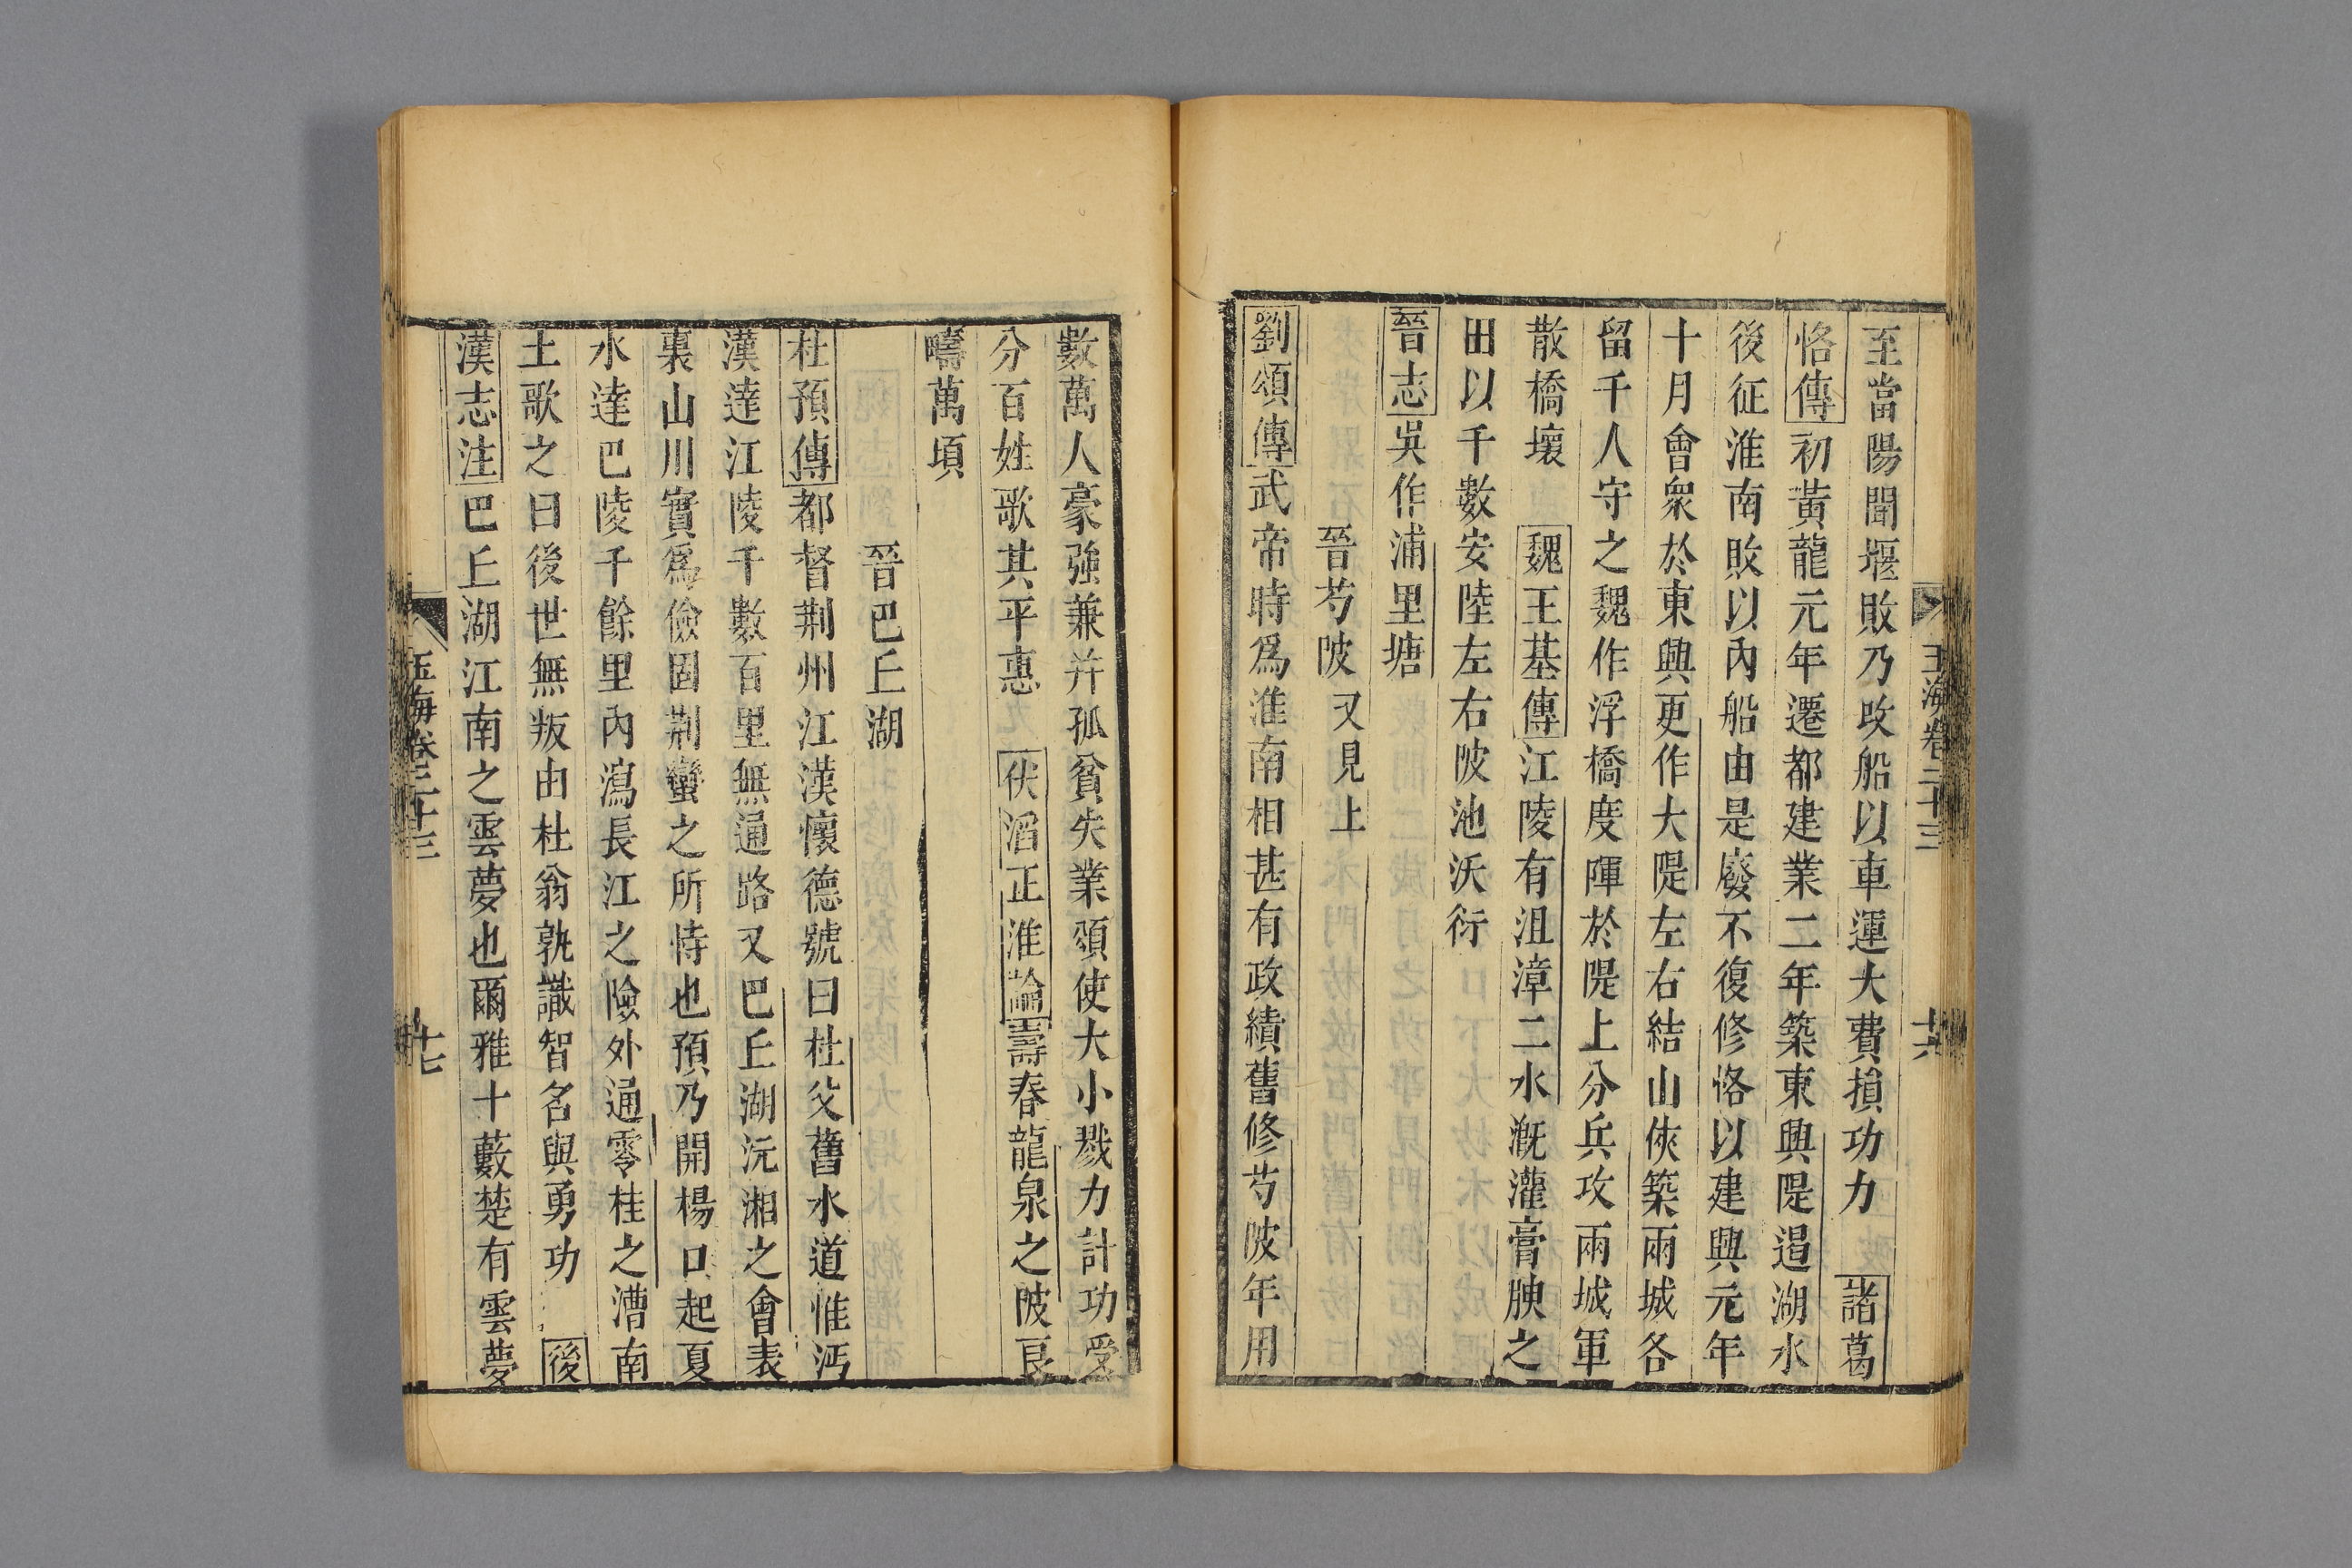 玉海卷二十三 十六
至當陽聞堰敗乃攺船以車運大費損功力 諸葛
恪傳初黃龍元年遷都建業二年築東興隄遏湖水
後征淮南敗以內船由是廢不復修恪以建興元年
十月會衆於東興更作大隄左右結山俠築兩城各
留千人守之魏作浮橋度陣於隄上分兵攻兩城軍
散橋壞 魏王基傳江陵有沮漳二水溉灌膏腴之
田以千數安陸左右陂池沃衍
晉志吳作浦里塘
晉芍陂又見上
劉頌傳武帝時爲淮南相甚有政績舊修芍陂年用
數萬人豪強兼并孤貧失業頌使大小戮力計功受
分百姓歌其平惠 伏滔正淮論壽春龍泉之陂良
疇萬頃
晉巴丘湖
杜預傳都督荆州江漢懷德號曰杜父舊水道惟沔
漢達江陵千數百里無通路又巴丘湖沅湘之會表
裏山川實爲險固荆蠻之所恃也預乃開楊口起夏
水達巴陵千餘里內瀉長江之險外通零桂之漕南
土歌之曰後世無叛由杜翁孰識智名與勇功 後
漢志注巴丘湖江南之雲夢也爾雅十藪楚有雲夢
玉海卷二十三 十七